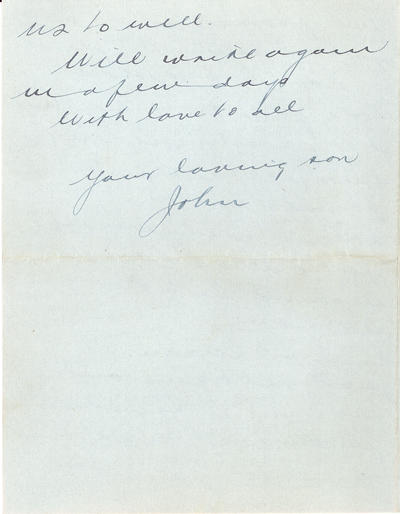 us to well.
Will write again
in a few days
With love to all
Your loving son
John